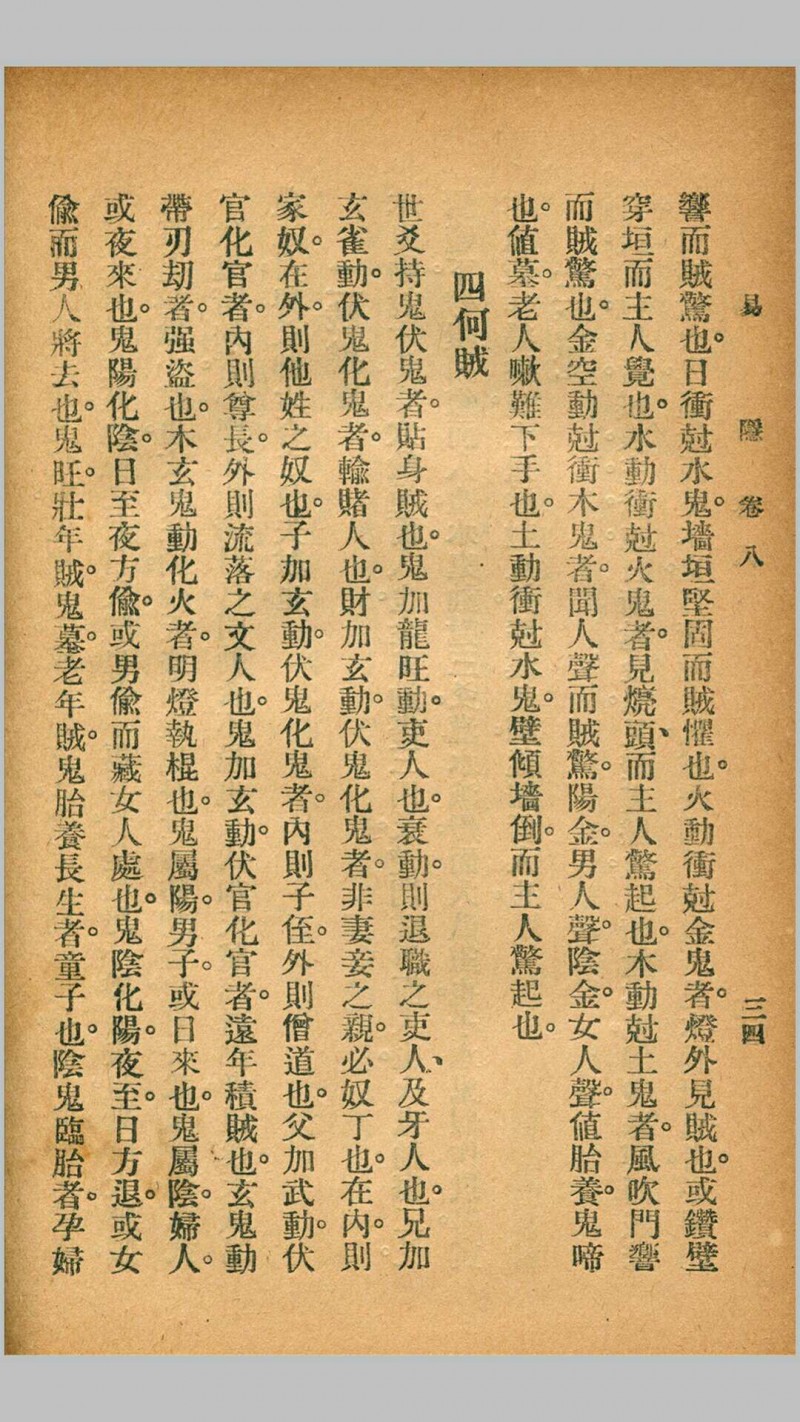 易隱卷八 三四
響而賊驚也。日衝尅水鬼。墻垣堅固而賊懼也。火動衝尅金鬼者。燈外見賊也。或鑽壁
穿垣而主人覺也。水動衝尅火鬼者。見燒頭、而主人驚起也。木動尅土鬼者。風吹門響
而賊驚也。金空動尅衝木鬼者。聞人聲而賊驚。陽金。男人聲。陰金。女人聲。値胎養。鬼啼
也。値墓。老人嗽難下手也。土動衝尅水鬼。壁傾墻倒。而主人驚起也。
四何賊
世爻持鬼伏鬼者。貼身賊也。鬼加龍旺動。吏人也。衰動。則退職之吏人、及牙人也。兄加
玄雀動。伏鬼化鬼者。輸賭人也。財加玄動。伏鬼化鬼者。非妻妾之親。必奴丁也。在內。則
家奴。在外。則他姓之奴也。子加玄動。伏鬼化鬼者。內則子侄。外則僧道也。父加武動。伏
官化官者。內則尊長。外則流落之文人也。鬼加玄動。伏官化官者。遠年積賊也。玄鬼動
帶刃刧者。强盜也。木玄鬼動化火者。明燈執棍也。鬼屬陽。男子。或日來也。鬼屬陰。婦人。
或夜來也。鬼陽化陰。日至夜方偸。或男偸而藏女人處也。鬼陰化陽。夜至。日方退。或女
偸而男人將去也。鬼旺。壯年賊。鬼墓。老年賊。鬼胎養長生者。童子也。陰鬼臨胎者。孕婦